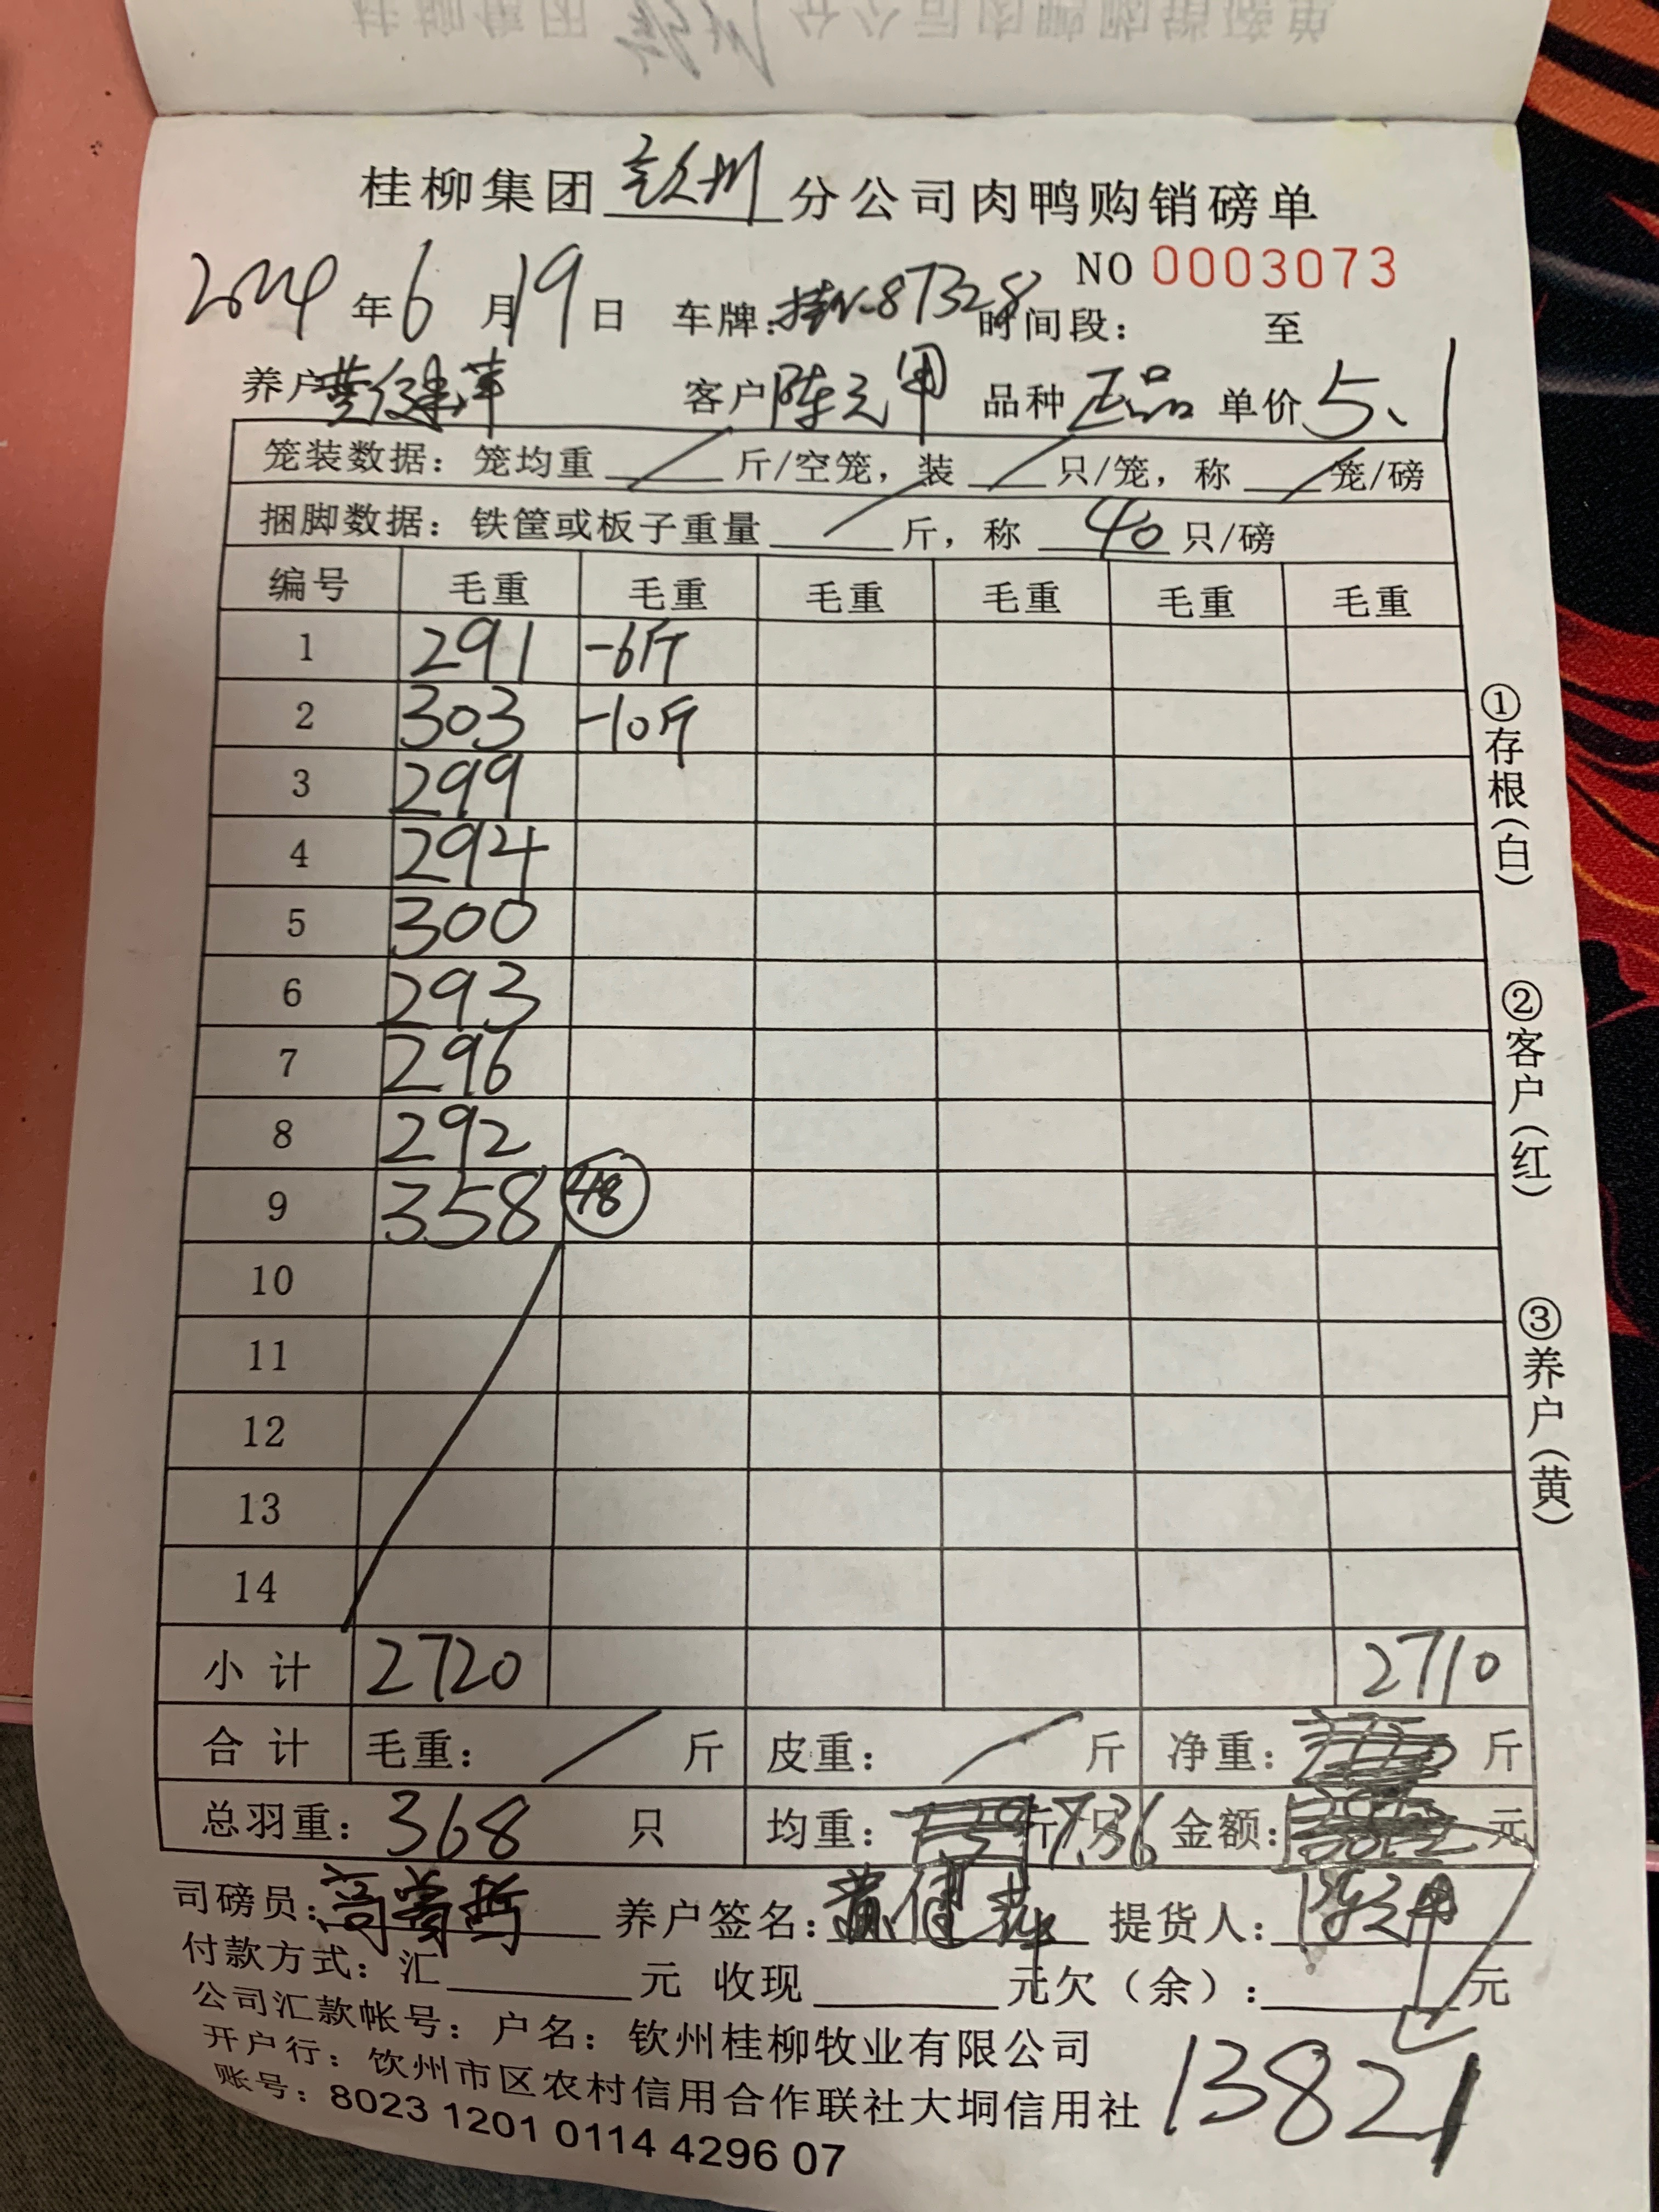 桂柳集团钦州分公司肉鸭购销磅单
NO 0003073
2024年6月19日 车牌:桂N-87328 时间段: 至
养户 客户陈元甲 品种正品 单价5.1
笼装数据:笼均重 斤/空笼,装 只/笼,称 笼/磅
捆脚数据:铁筐或板子重量 斤,称 40 只/磅
编号 毛重 毛重 毛重 毛重 毛重 毛重
1 291 -6斤
2 303 -10斤
3 299
4 294
5 300
6 293
7 296
8 292
9 358 48
10
11
12
13
14
小计 2720 2710
合计 毛重: 斤 皮重: 斤 净重: 斤
总羽重:368 只 均重: 斤/只 7.36 金额: 元
司磅员: 养户签名:黄健 提货人:陈元甲
付款方式:汇 元 收现 元欠(余): 元
公司汇款帐号:户名:钦州桂柳牧业有限公司
开户行:钦州市区农村信用合作联社大垌信用社
账号:8023 1201 0114 4296 07
13821
①存根(白)
②客户(红)
③养户(黄)